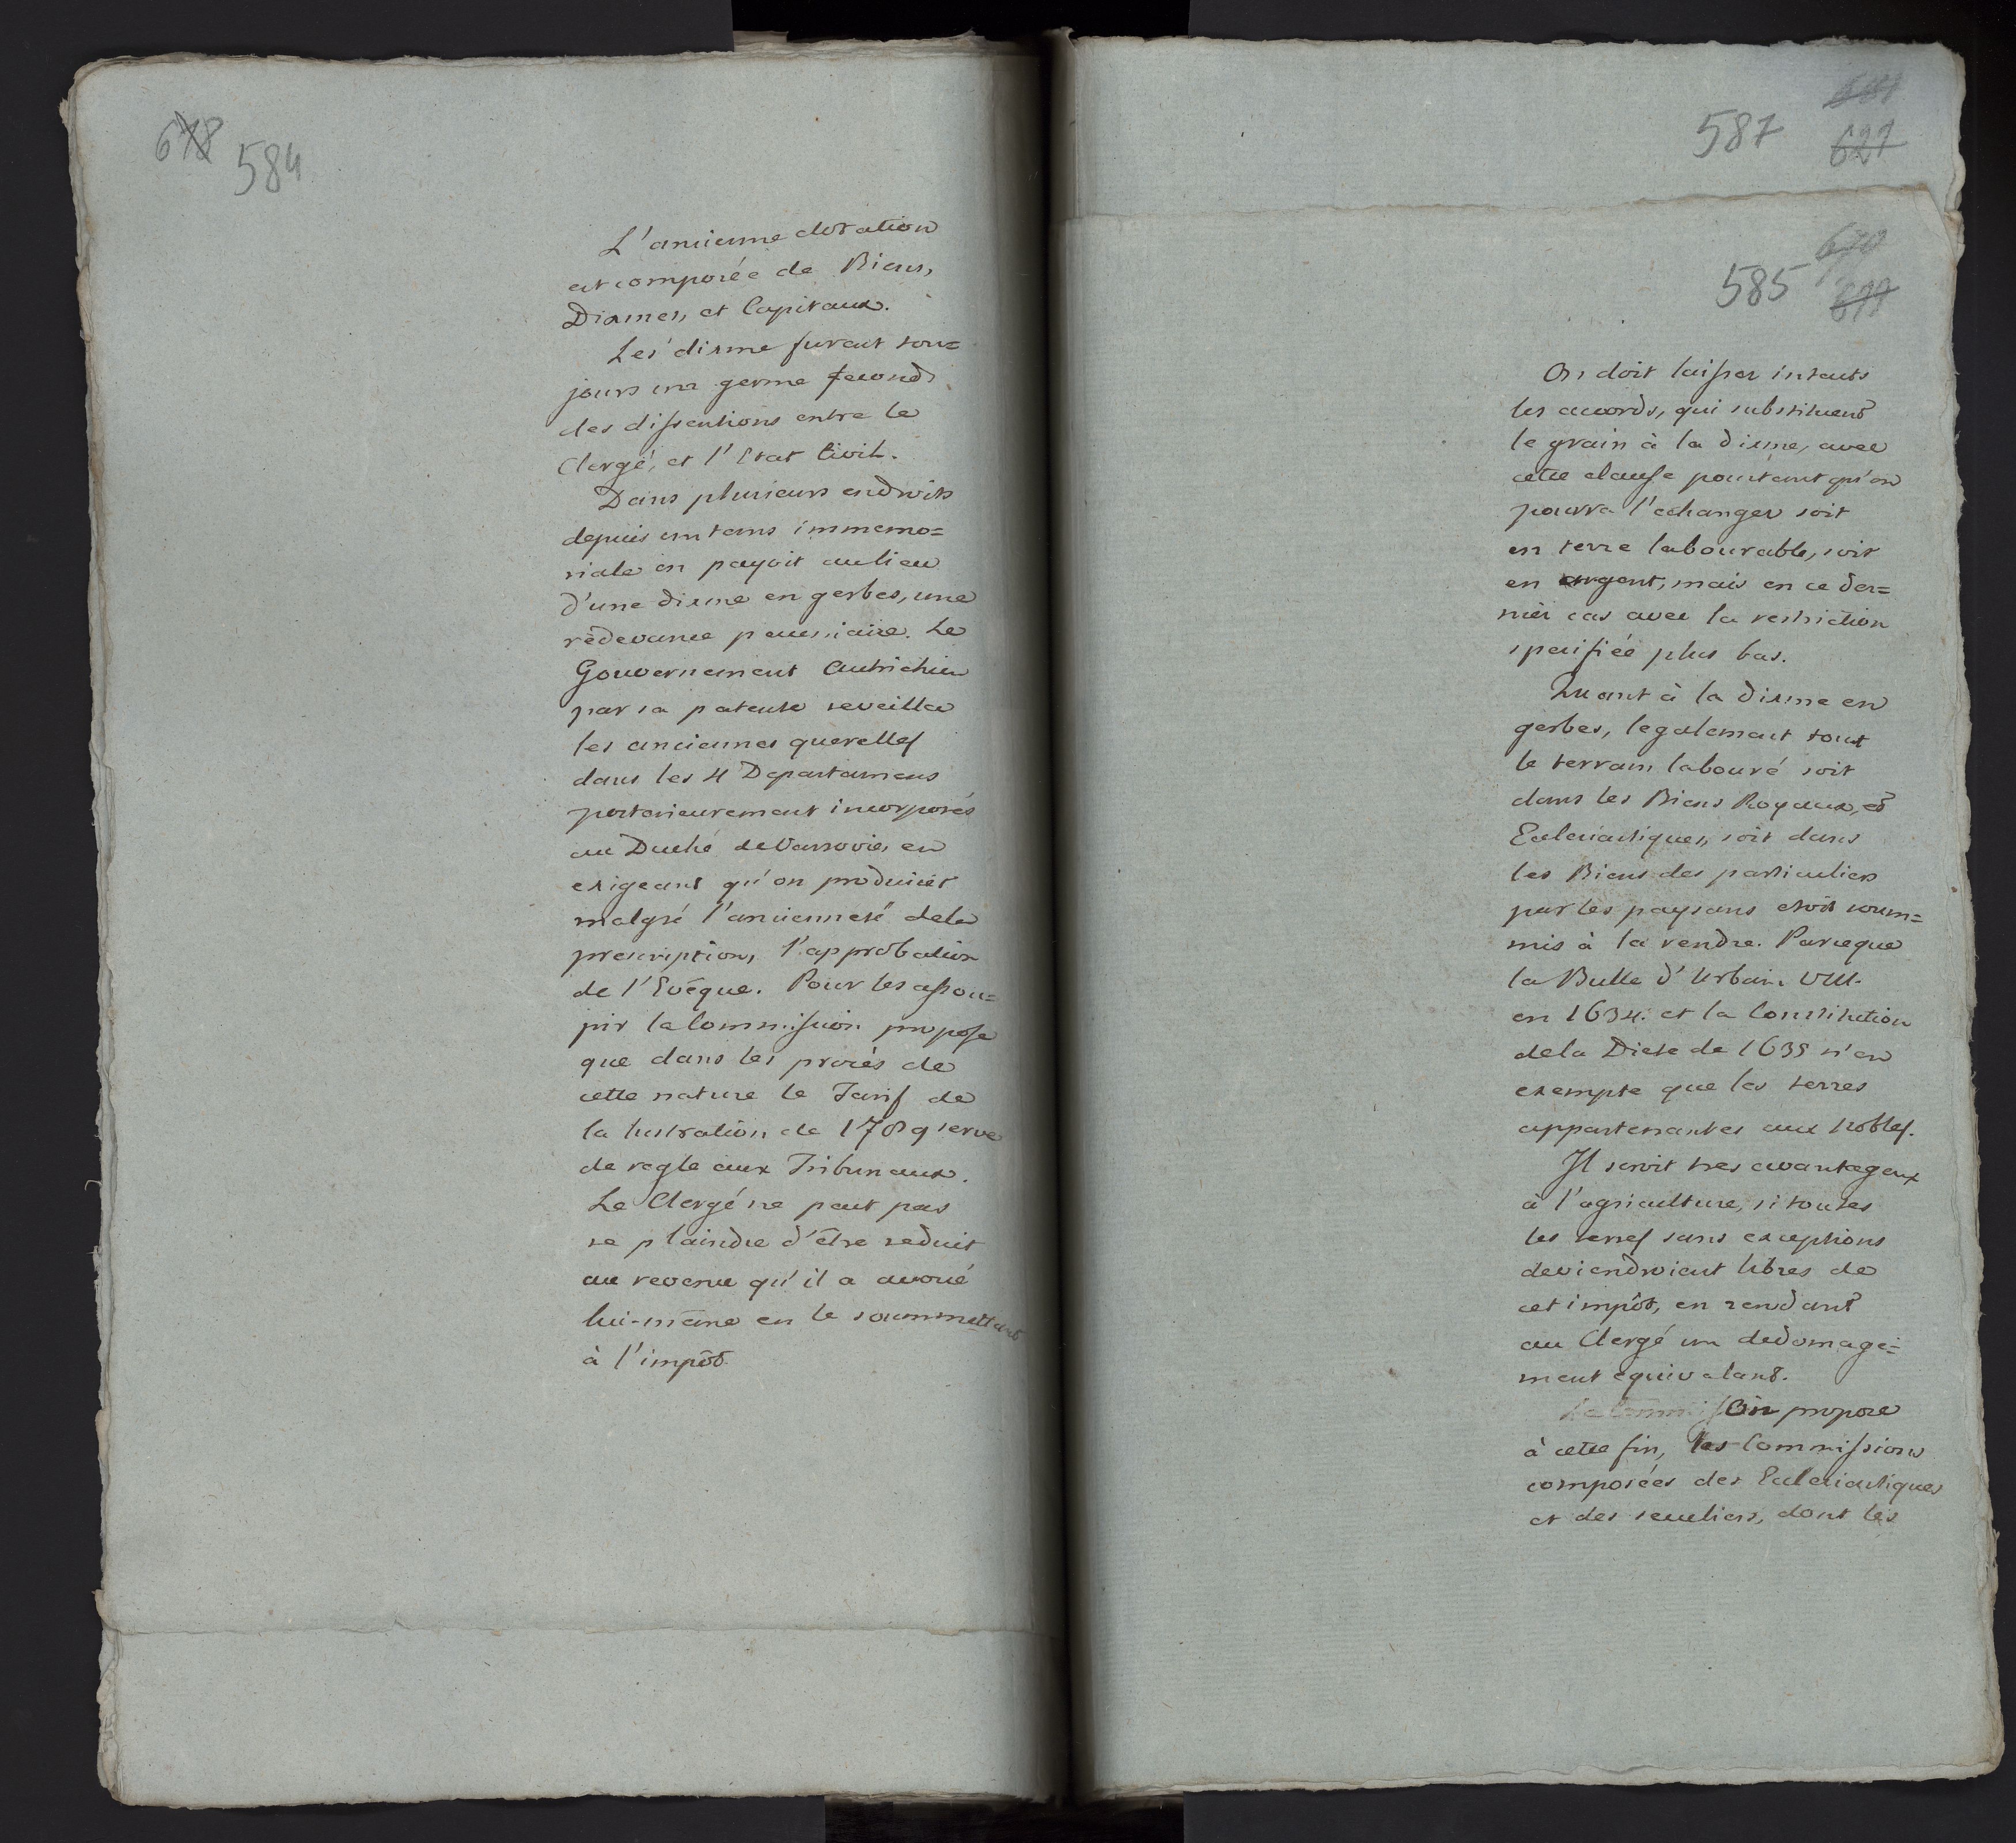 678 584
L'ancienne dotation
est composée de Biens,
Dixmes, et Capitaux.
Les dixme furent tou=
jours un germe fecond
des dissentions entre le
Clergé, et l'Etat Civil.
Dans plusieurs endroits
depuis un tems immemo=
riale on payoit aulieu
d'une dixme en gerbes, une
rédevance pecuniaire. Le
Gouvernement Autrichien
par sa patente reveilla
les anciennes querelles
dans les 4 Departamens
posterieurement incorporés
au Duché de Varsovie, en
exigeant qu'on produisit
malgré l'ancienneté dela
prescription, l'approbation
de l'Evêque. Pour les assou=
pir la Commission propose
que dans les procés de
cette nature le Tarif de
la lustration de 1789 serve
de regle aux Tribunaux.
Le Clergé ne peut pas
se plaindre d'être reduit
au revenu qu'il a avoué
lui-même en le soummettant
à l'impôt.
587 621
585 619
On doit laisser intacts
les accords, qui substituent
le grain à la dixme, avec
cette clause pourtant qu'on
pourra l'echanger soit
en terre labourable, soit
en argent, mais en ce der=
nier cas avec la restriction
specifiée plus bas.
Quant à la dixme en
gerbes, legalement tout
le terrain labouré soit
dans les Biens Royaux, et
Eclesiastiques, soit dans
les Biens des particuliers
par les paysans etoit soum=
mis à la rendre. Parceque
la Bulle d'Urbain VIII.
en 1634. et la Constitution
dela Diete de 1635 n'en
exempte que les terres
appartenantes aux Nobles.
Il seroit tres avantageux
à l'agriculture, si toutes
les terres sans exceptions
deviendroient libres de
cet impôt, en rendant
au Clergé un dedomage=
ment equivalant.
On propose
à cette fin, les Commissions
composées des Eclesiastiques
et des seculiers, dont les